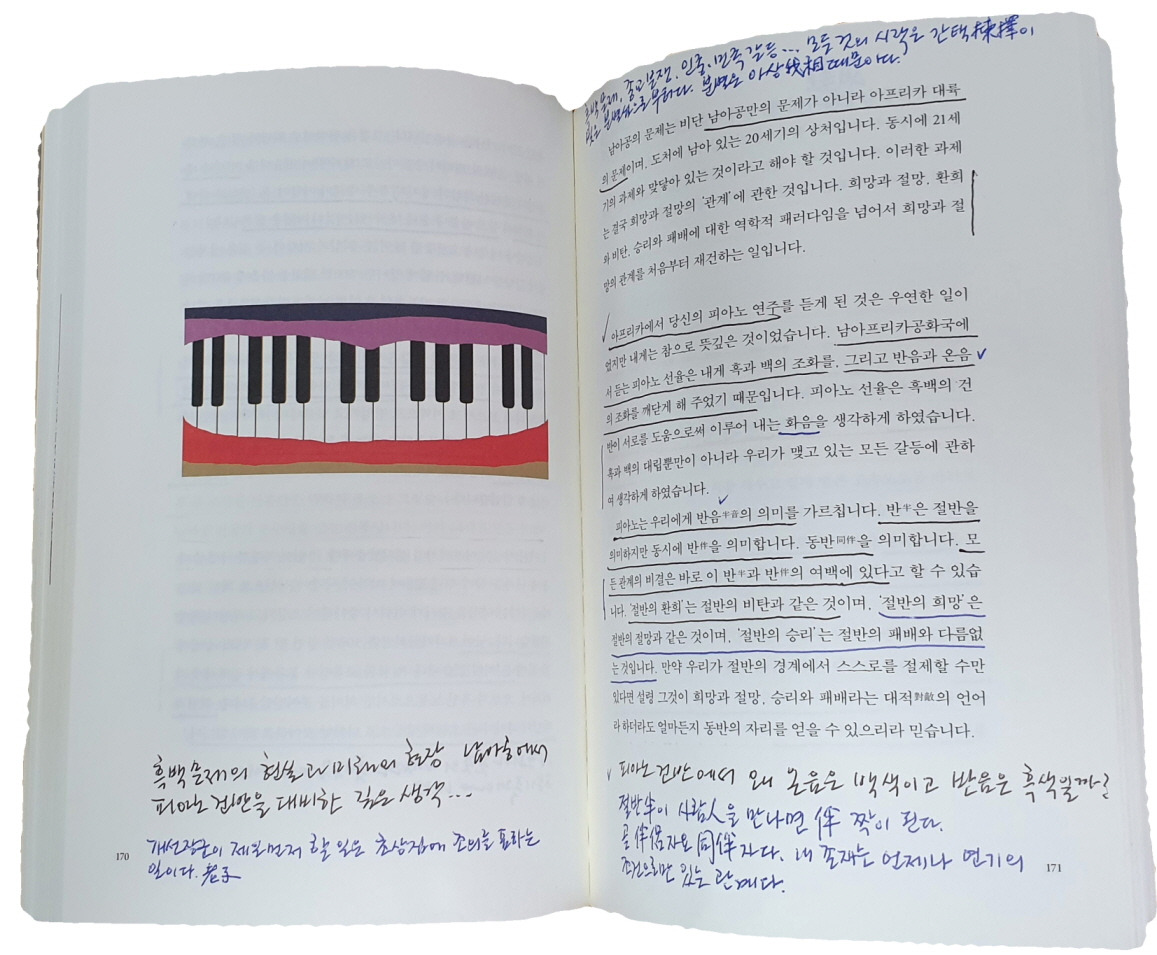 흑백문제의 현실과 미래의 현장 남아공에서
피아노 건반을 대비한 깊은 생각...
개선장군이 제일먼저 할 일은 초상집에 조의를 표하는
일이다. 老子
170
흑백문제, 종교분쟁, 인종·민족 갈등... 모든것의 시작은 간택揀擇이
빚은 분별심으로부터다. 분별은 아상我相 때문이다.
남아공의 문제는 비단 남아공만의 문제가 아니라 아프리카 대륙
의 문제이며, 도처에 남아 있는 20세기의 상처입니다. 동시에 21세
기의 과제와 맞닿아 있는 것이라고 해야 할 것입니다. 이러한 과제
는 결국 희망과 절망의 '관계'에 관한 것입니다. 희망과 절망, 환희
와 비탄, 승리와 패배에 대한 역학적 패러다임을 넘어서 희망과 절
망의 관계를 처음부터 재건하는 일입니다.
아프리카에서 당신의 피아노 연주를 듣게 된 것은 우연한 일이
었지만 내게는 참으로 뜻깊은 것이었습니다. 남아프리카공화국에
서 듣는 피아노 선율은 내게 흑과 백의 조화를, 그리고 반음과 온음
의 조화를 깨닫게 해 주었기 때문입니다. 피아노 선율은 흑백의 건
반이 서로를 도움으로써 이루어 내는 화음을 생각하게 하였습니다.
흑과 백의 대립뿐만이 아니라 우리가 맺고 있는 모든 갈등에 관하
여 생각하게 하였습니다.
피아노는 우리에게 반음半音의 의미를 가르칩니다. 반半은 절반을
의미하지만 동시에 반伴을 의미합니다. 동반同伴을 의미합니다. 모
든 관계의 비결은 바로 이 반半과 반伴의 여백에 있다고 할 수 있습
니다. '절반의 환희'는 절반의 비탄과 같은 것이며, '절반의 희망'은
절반의 절망과 같은 것이며, '절반의 승리'는 절반의 패배와 다름없
는 것입니다. 만약 우리가 절반의 경계에서 스스로를 절제할 수만
있다면 설령 그것이 희망과 절망, 승리와 패배라는 대적對敵의 언어
라 하더라도 얼마든지 동반의 자리를 얻을 수 있으리라 믿습니다.
피아노 건반에서 왜 온음은 백색이고 반음은 흑색일까?
절반半이 사람人을 만나면 伴 짝이 된다.
곧 伴侶자요 同伴자다. 내 존재는 언제나 연기의
조건으로만 있는 관계다.
171